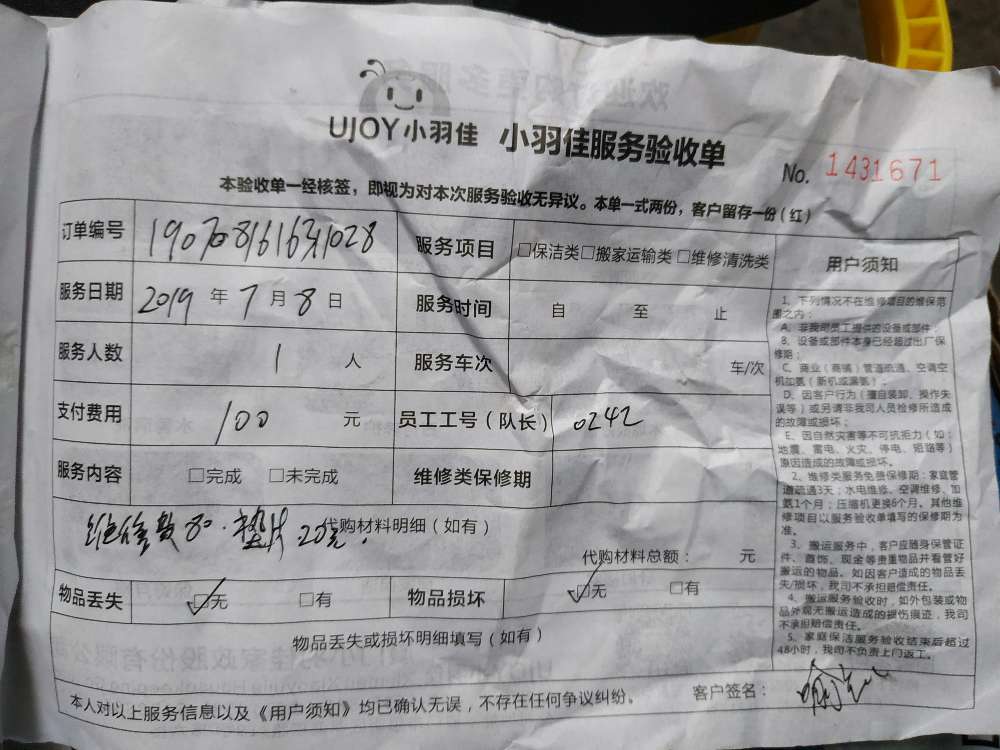 UJOY小羽佳 小羽佳服务验收单
No. 1431671
本验收单一经核签，即视为对本次服务验收无异议。本单一式两份，客户留存一份（红）
订单编号
服务项目 □保洁类□搬家运输类 □维修清洗类
服务日期 2019 年 7 月 8 日 服务时间 自 至 止
服务人数 1 人 服务车次 车/次
支付费用 100 元 员工工号（队长） 0242
服务内容 □完成 □未完成 维修类保修期
维修费80·垫片20元.
代购材料明细（如有）
代购材料总额： 元
物品丢失 ☑无 □有 物品损坏 ☑无 □有
物品丢失或损坏明细填写（如有）
本人对以上服务信息以及《用户须知》均已确认无误，不存在任何争议纠纷。
客户签名：
用户须知
1、下列情况不在维修项目的维保范
围之内：
A、非我司员工提供的设备或部件；
B、设备或部件本身已经超过出厂保
修期；
C、商业（商铺）管道疏通、空调空
机加氨（新机或漏氨）；
D、因客户行为（擅自装卸、操作失
误等）或另请非我司人员检修所造成
的故障或损坏；
E、因自然灾害等不可抗拒力（如：
地震、雷电、火灾、停电、短路等）
原因造成的故障或损坏。
2、维修类服务免费保修期：家庭管
道疏通3天；水电维修、空调维修、加
氨1个月；压缩机更换6个月。其他维
修项目以服务验收单填写的保修期为
准。
3、搬运服务中，客户应随身保管证
件、首饰、现金等贵重物品并看管好
搬运的物品。如因客户造成的物品丢
失/损坏，我司不承担赔偿责任。
4、搬运服务验收时，如外包装或物
品外观无搬运造成的损伤痕迹，我司
不承担赔偿责任。
5、家庭保洁服务验收结束后超过
48小时，我司不负责上门返工。